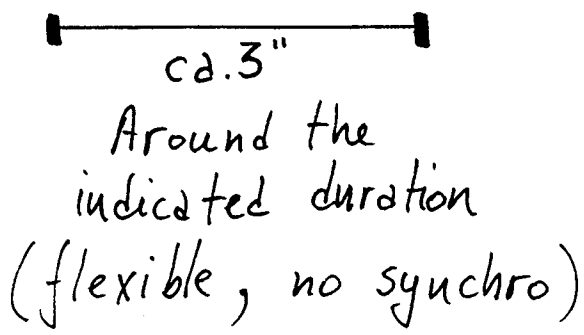 ca.3"
Around the
indicated duration
(flexible, no synchro)